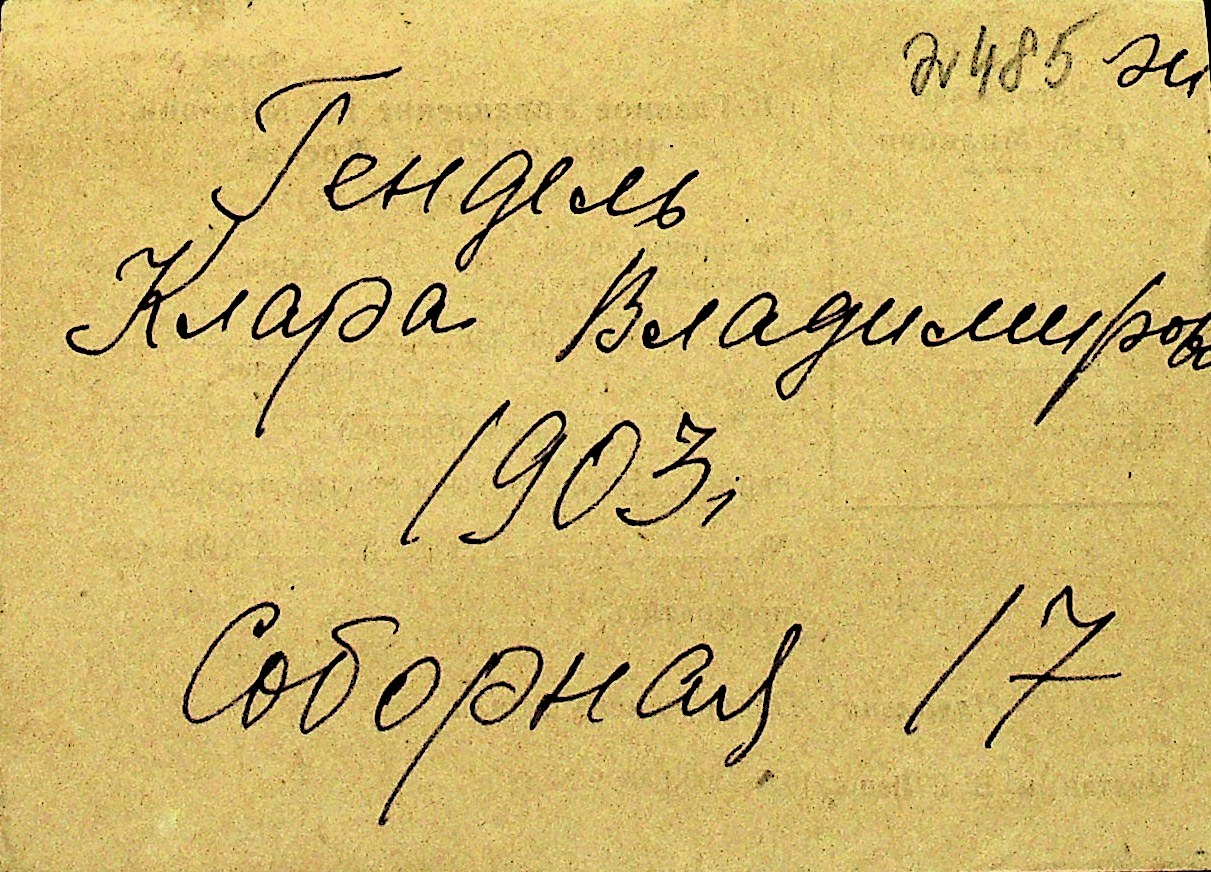 №485
Гендель
Клара Владимиров
1903г
Соборная 17